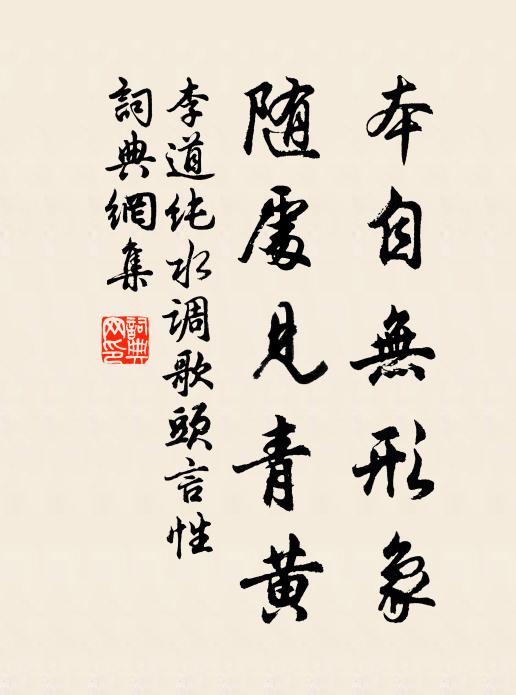 本自無形象
随處見青黄
李道純水调歌頭言性
詞典網集
詞典網印